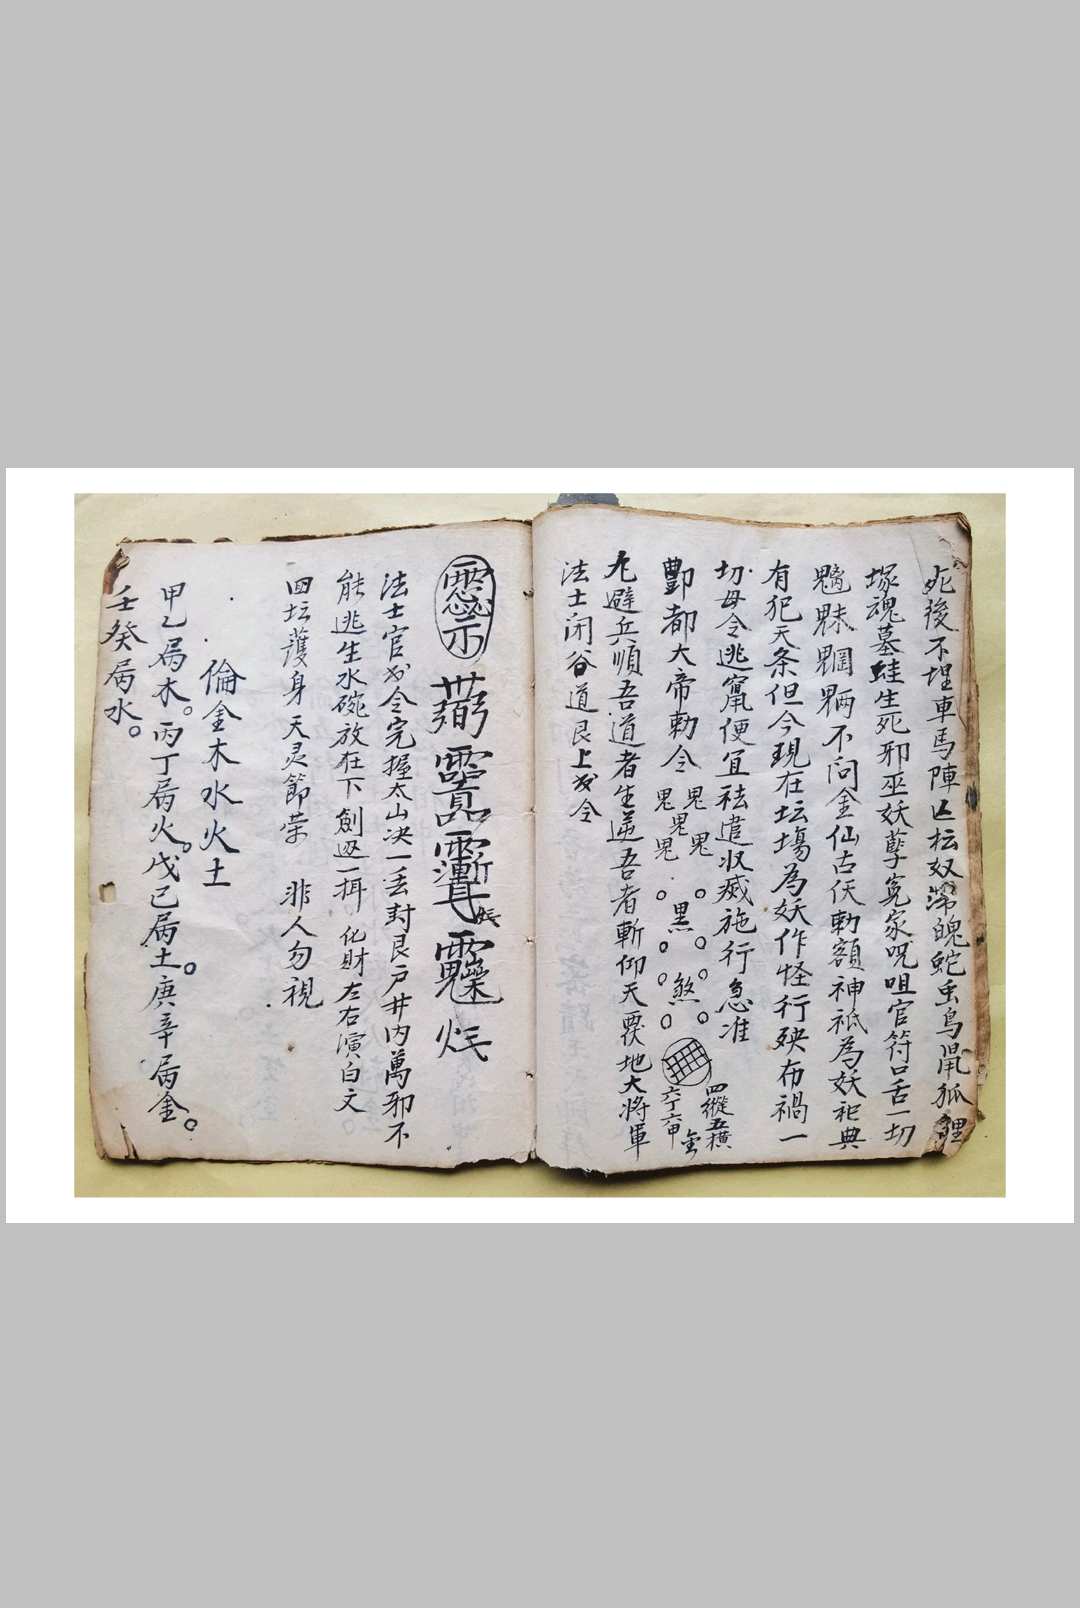 死後不埋車馬陣亡枟奴滯魄蛇虫鳥鼡狐狸
塚魂墓蛙生死邪巫妖孽冤家呪咀官符口舌一切
魑魅魍魎不问金仙古仸勅額神祇為妖祀典
有犯天条但今現在坛塲為妖作怪行殃布禍一
切毋令逃竄便宜祛遣収滅施行急准
酆都大帝勅令 鬼鬼鬼鬼鬼 黒煞 四縱五橫 六丁六甲
九避兵順吾道者生逆吾者斬仰天覆地大將軍
法士闭谷道艮上
法士官 令完握太山决一丢封艮户井内萬邪不
能逃生水碗放在下創 一揖化財左右演白文
回坛護身天灵節荣 非人勿視
倫金木水火土
甲乙屬木。丙丁屬火。戊己屬土。庚辛屬金。
壬癸屬水。